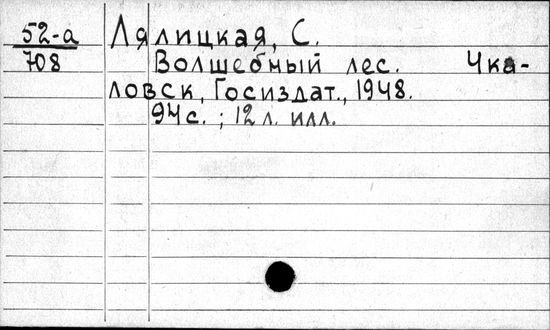 52-а Лялицкая, С.
708 Волшебный лес. Чка-
ловск, Госиздат., 1948.
94 с. ; 12 л. илл.